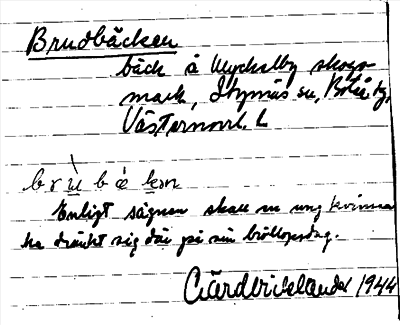 Brudbäcken
bäck å Myckelby skogs-
mark, Styrnäs sn, Boteå tg,
Västernorrl. l.
brù bè kɛn
Enligt sägnen skall en ung kvinna
ha dränkt sig där på sin bröllopsdag.
1944